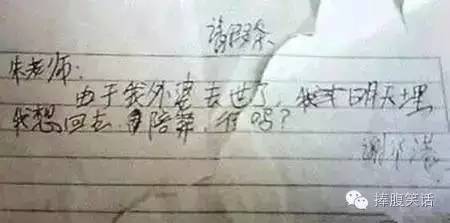 请假条
朱老师:
由于我外婆去世了,我 明天埋
我想回去 陪葬,行吗?
谢
捧腹笑话